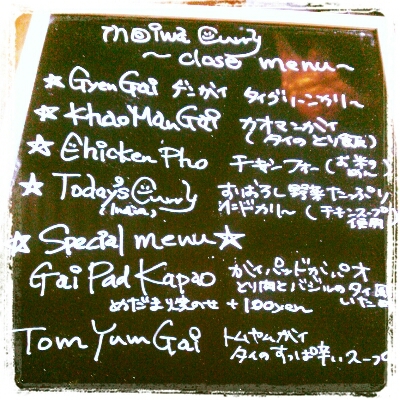 moiwa Curry
~close menu~
☆ Gyen Gai ゲンガイ タイグリーンカリー
☆ Khao Man Gai カオマンガイ
(タイのとり飯)
☆ Chicken Pho チキンフォー (お米のめん)
☆ Today's Curry すぱらし野菜たっぷり
(Indian) インドカリー (チキンスープ使用
☆ Special menu ☆
Gai Pad Kapao ガイパッドガパオ
とり肉とバジルのタイ風
いため
めだまり焼のせ +100yen
Tom Yum Gai トムヤムガイ
タイのすっぱ辛いスープ